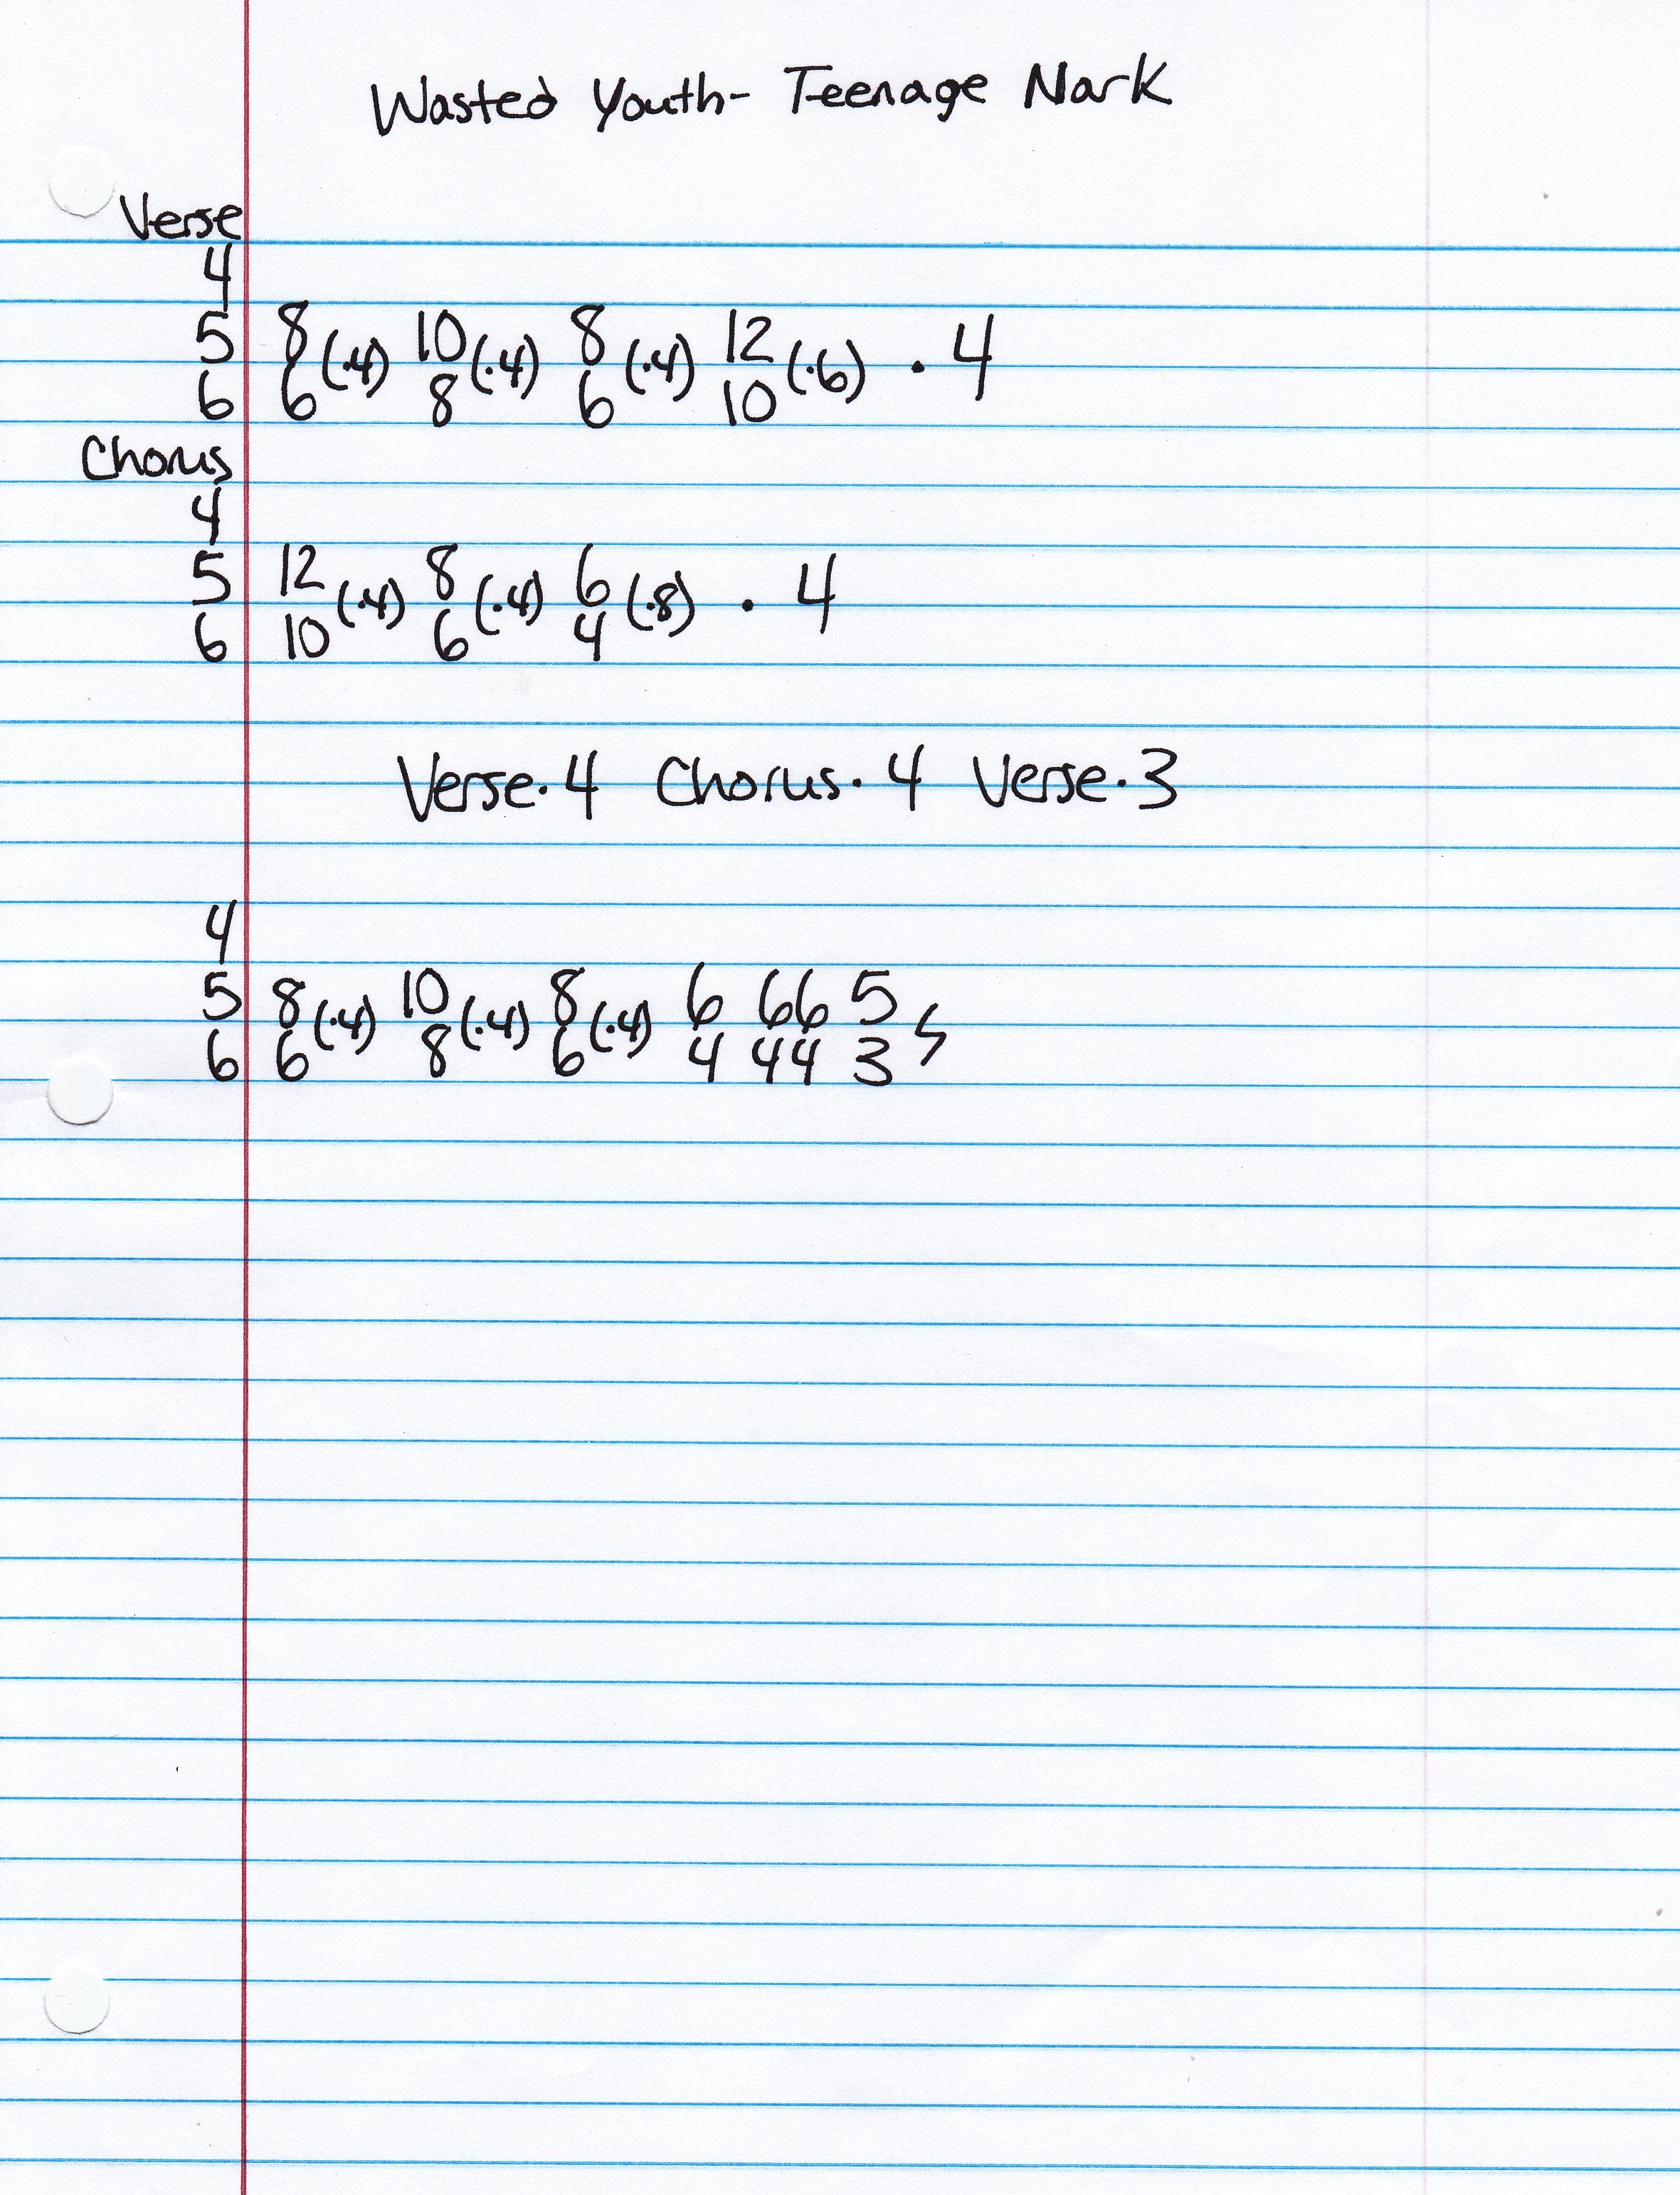 Wasted Youth- Teenage Nark
Verse
4
5 8 (·4) 10 (·4) 8 (·4) 12 (·6) · 4
6 6 8 6 10
Chorus
4
5 12 (·4) 8 (·4) 6 (·8) · 4
6 10 6 4
Verse·4 Chorus·4 Verse·3
4
5 8 (·4) 10 (·4) 8 (·4) 6 66 5
6 6 8 6 4 44 3